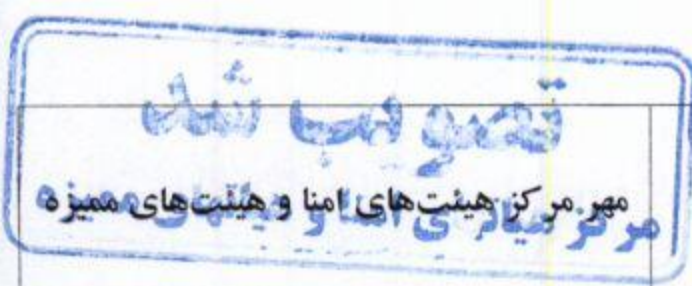 تصویب شد
مهر مرکز هیئت‌های امنا و هیئت‌های ممیزه
مرکز هیاتهای امنا و هیاتهای ممیزه